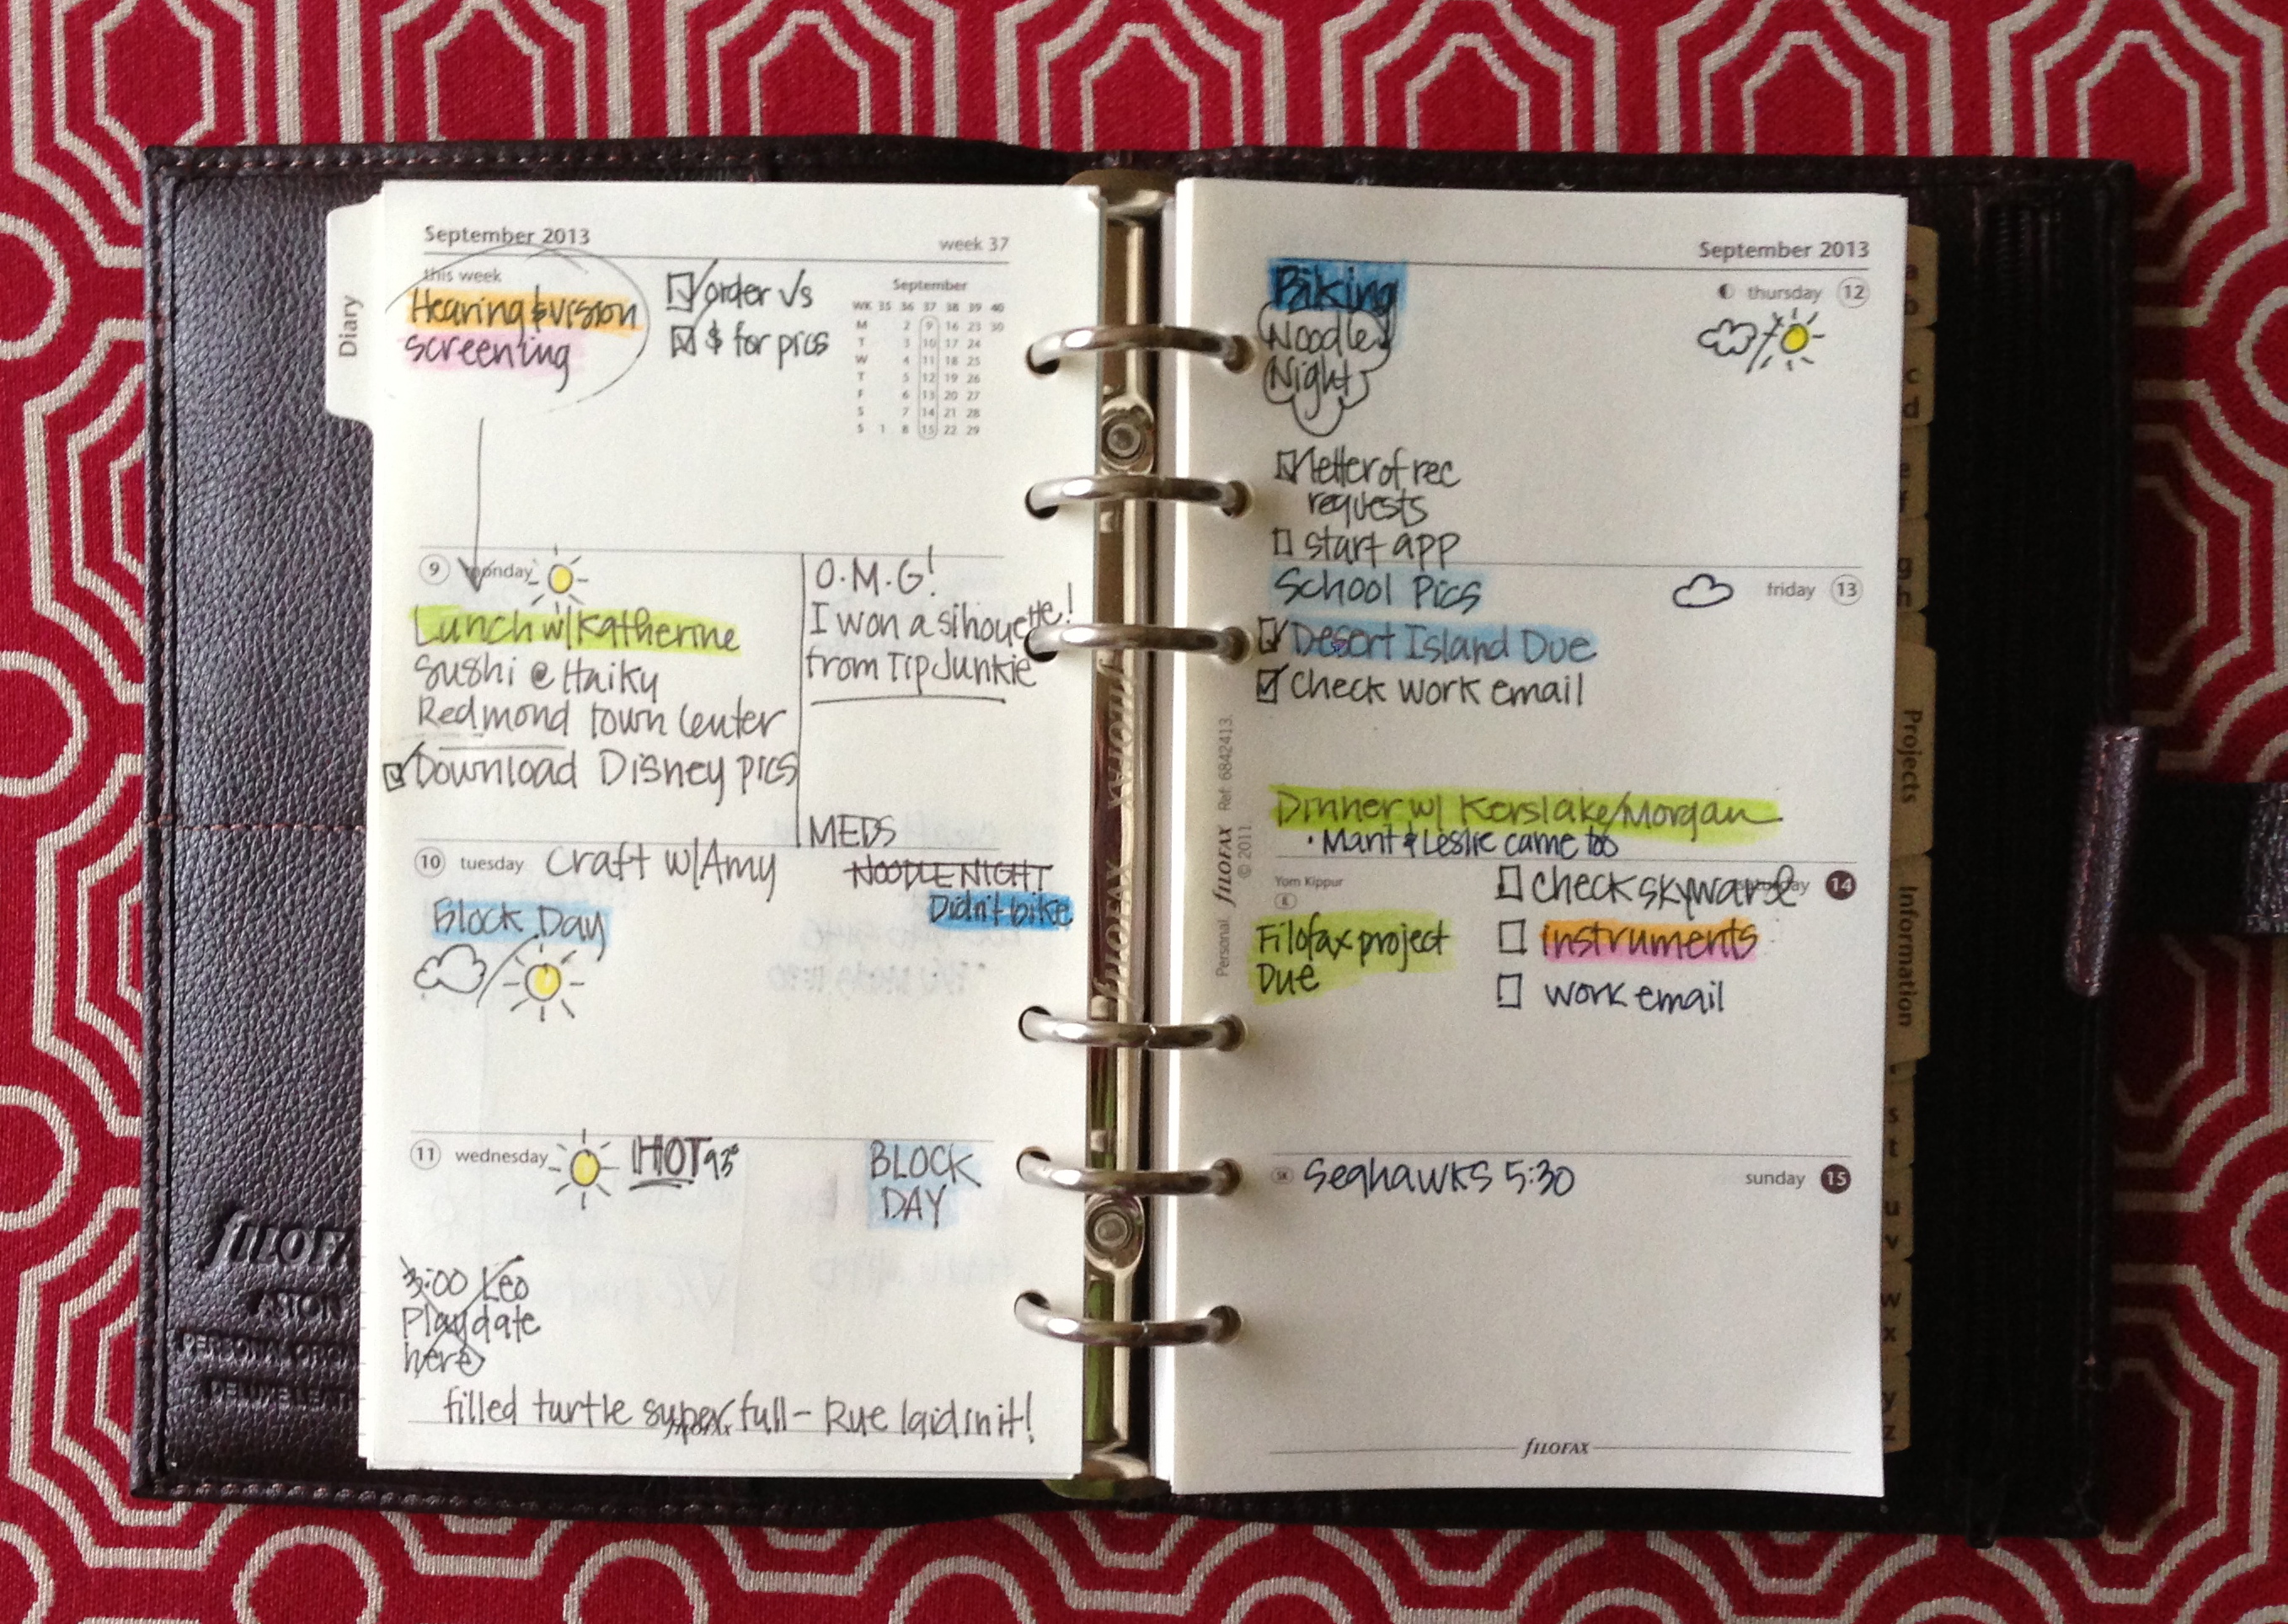 Diary
September 2013
week 37
this week
Hearing & vision
screening
order vs
$ for pics
September
WK 35 36 37 38 39 40
M 2 9 16 23 30
T 3 10 17 24
W 4 11 18 25
T 5 12 19 26
F 6 13 20 27
S 7 14 21 28
S 1 8 15 22 29
9 monday
Lunch w/Katherine
Sushi @ Haiku
Redmond Town Center
Download Disney pics
O.M.G!
I won a sihouette!
from Tip Junkie
MEDS
10 tuesday Craft w/Amy
NOODLE NIGHT
Didn't bike
Block Day
11 wednesday
HOT 93°
BLOCK
DAY
3:00 Leo
Playdate
here
filled turtle super full - Rue laid in it!
filofax
filofax
ASTON
PERSONAL ORG
DELUXE LEAT
September 2013
thursday 12
Biking
Noodle
Night
letter of rec
requests
start app
friday 13
School Pics
Desert Island Due
Check work email
Dinner w/ Kerslake/Morgan
• Marit & Leslie came too
Personal filofax © 2011. Ref. 6842413.
Yom Kippur
saturday 14
check skyward
Filofax project
Due
instruments
work email
SK Seahawks 5:30
sunday 15
filofax
a
b
c
d
e
f
g
h
Projects
Information
s
t
u
v
w
x
y
z